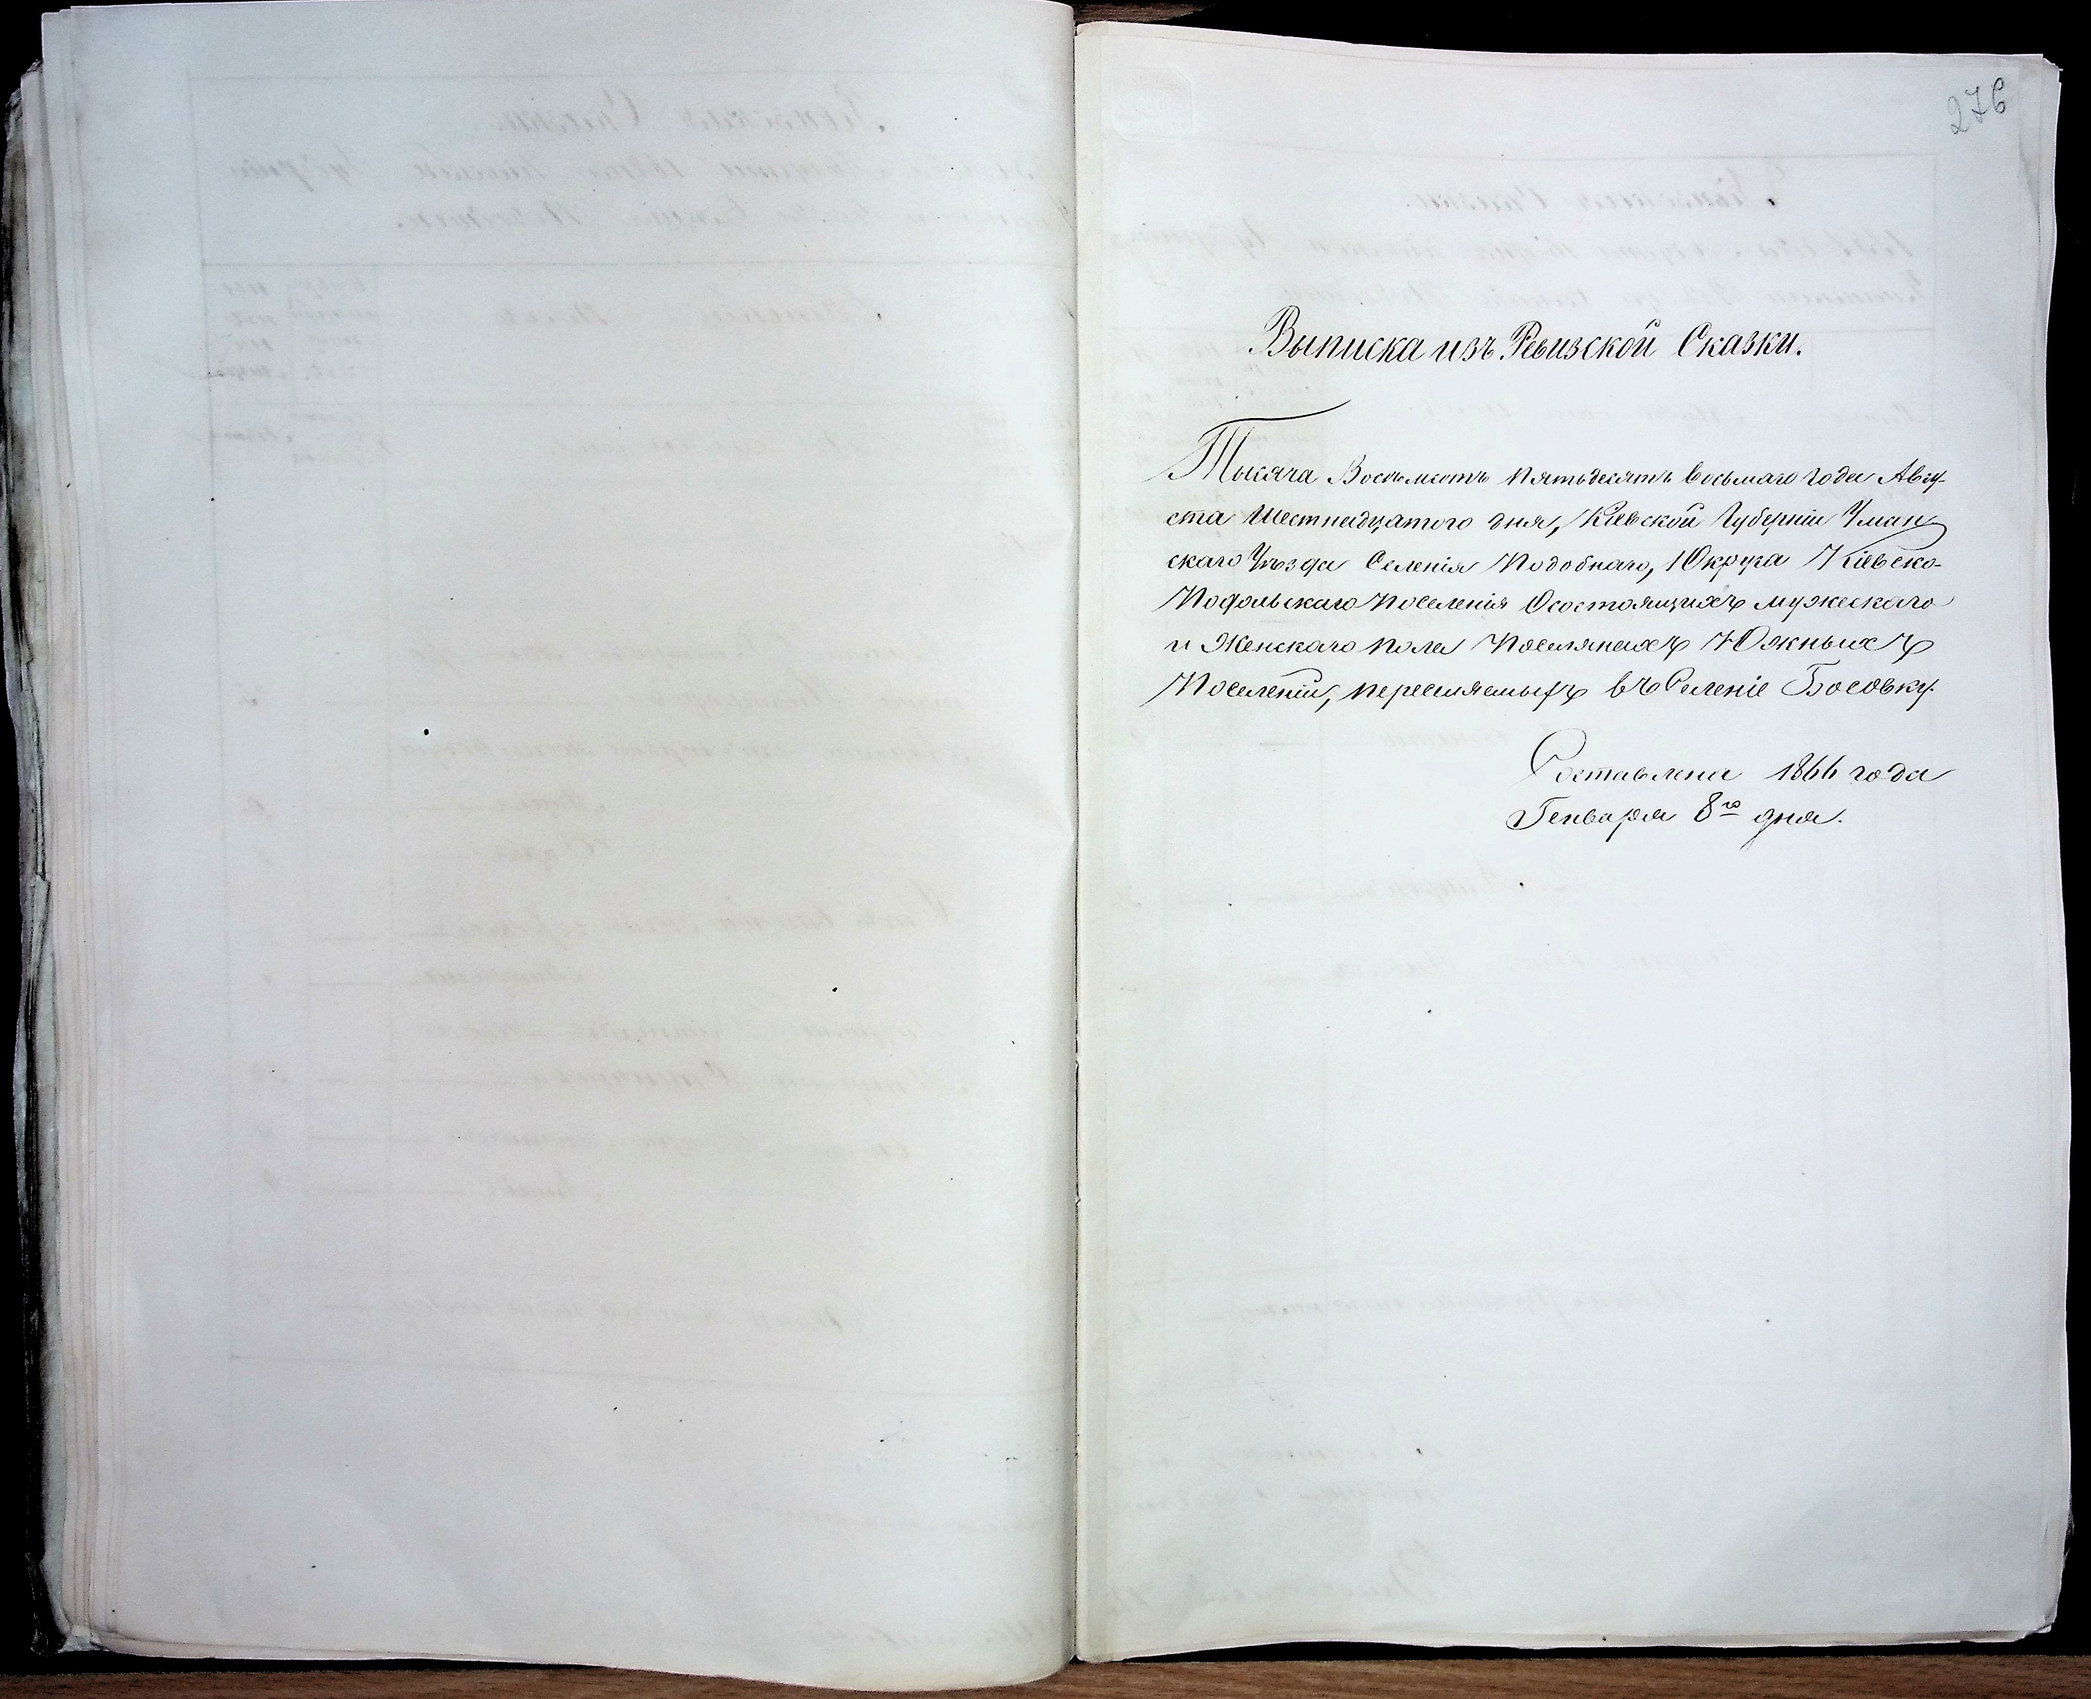 276
Выписка изъ Ревизской Сказки.
Тысяча Восемьсотъ пятьдесятъ восьмаго года Авгу-
ста Шестнадцатого дня, Кіевской Губерніи Уман-
скаго Уѣзда Селенія Подобнаго, 1 Округа Кіевско-
Подольскаго Поселенія О состоящихъ мужескаго
и Женскаго пола Поселянахъ Южныхъ
Поселеній, переселяемыхъ въ Селеніе Босовку.
Составлена 1866 года
Генваря 8го дня.